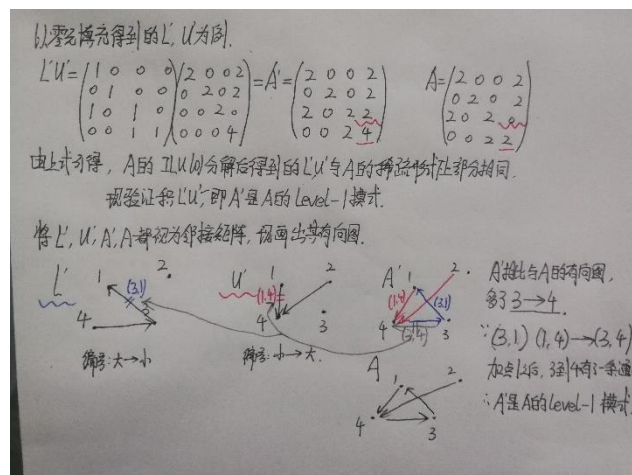 以零元填充得到的L', U'为例.
L'U' = (1 0 0 0; 0 1 0 0; 1 0 1 0; 0 0 1 1)(2 0 0 2; 0 2 0 2; 0 0 2 0; 0 0 0 4) = A' = (2 0 0 2; 0 2 0 2; 2 0 2 2; 0 0 2 4) A = (2 0 0 2; 0 2 0 2; 2 0 2 0; 0 0 2 2)
由上式可得, A的ILU(0)分解后得到的L'U'与A的稀疏形式部分相同.
现验证积L'U', 即A'是A的Level-1模式.
将L', U', A', A都视为邻接矩阵, 现画出其有向图.
L' 1 2 (3,1) 3 4
编号: 大→小
U' 1 2 (1,4) 3 4
编号: 小→大.
A' 1 2 (1,4) (3,1) (3,4) 3 4
A 1 2 3 4
A'相比与A的有向图,
多了3→4.
∵(3,1) (1,4)→(3,4)
加点1后, 3到4有一条通
∴A'是A的Level-1模式.